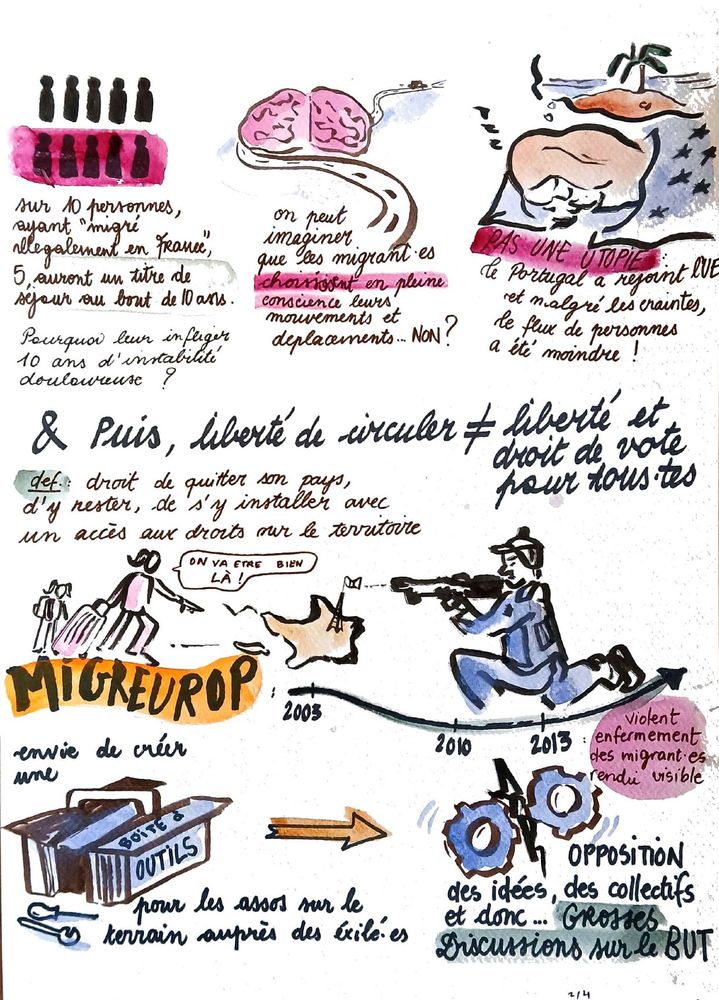 sur 10 personnes,
ayant "migré
illégalement en France",
5, auront un titre de
séjour au bout de 10 ans.
Pourquoi leur infliger
10 ans d'instabilité
douloureuse ?
on peut
imaginer
que les migrant·es
choisissent en pleine
conscience leurs
mouvements et
déplacements... NON ?
PAS UNE UTOPIE :
le Portugal a rejoint l'UE
et malgré les craintes,
le flux de personnes
a été moindre !
& Puis, liberté de circuler ≠ liberté et
droit de vote
pour tous·tes
def. : droit de quitter son pays,
d'y rester, de s'y installer avec
un accès aux droits sur le territoire
ON VA ETRE BIEN
LÀ !
MIGREUROP :
2003
2010
2013
violent
enfermement
des migrant·es
rendu visible
envie de créer
une
BOITE à
OUTILS
pour les assos sur le
terrain auprès des éxilé·es
OPPOSITION
des idées, des collectifs
et donc... GROSSES
Discussions sur le BUT
2/4